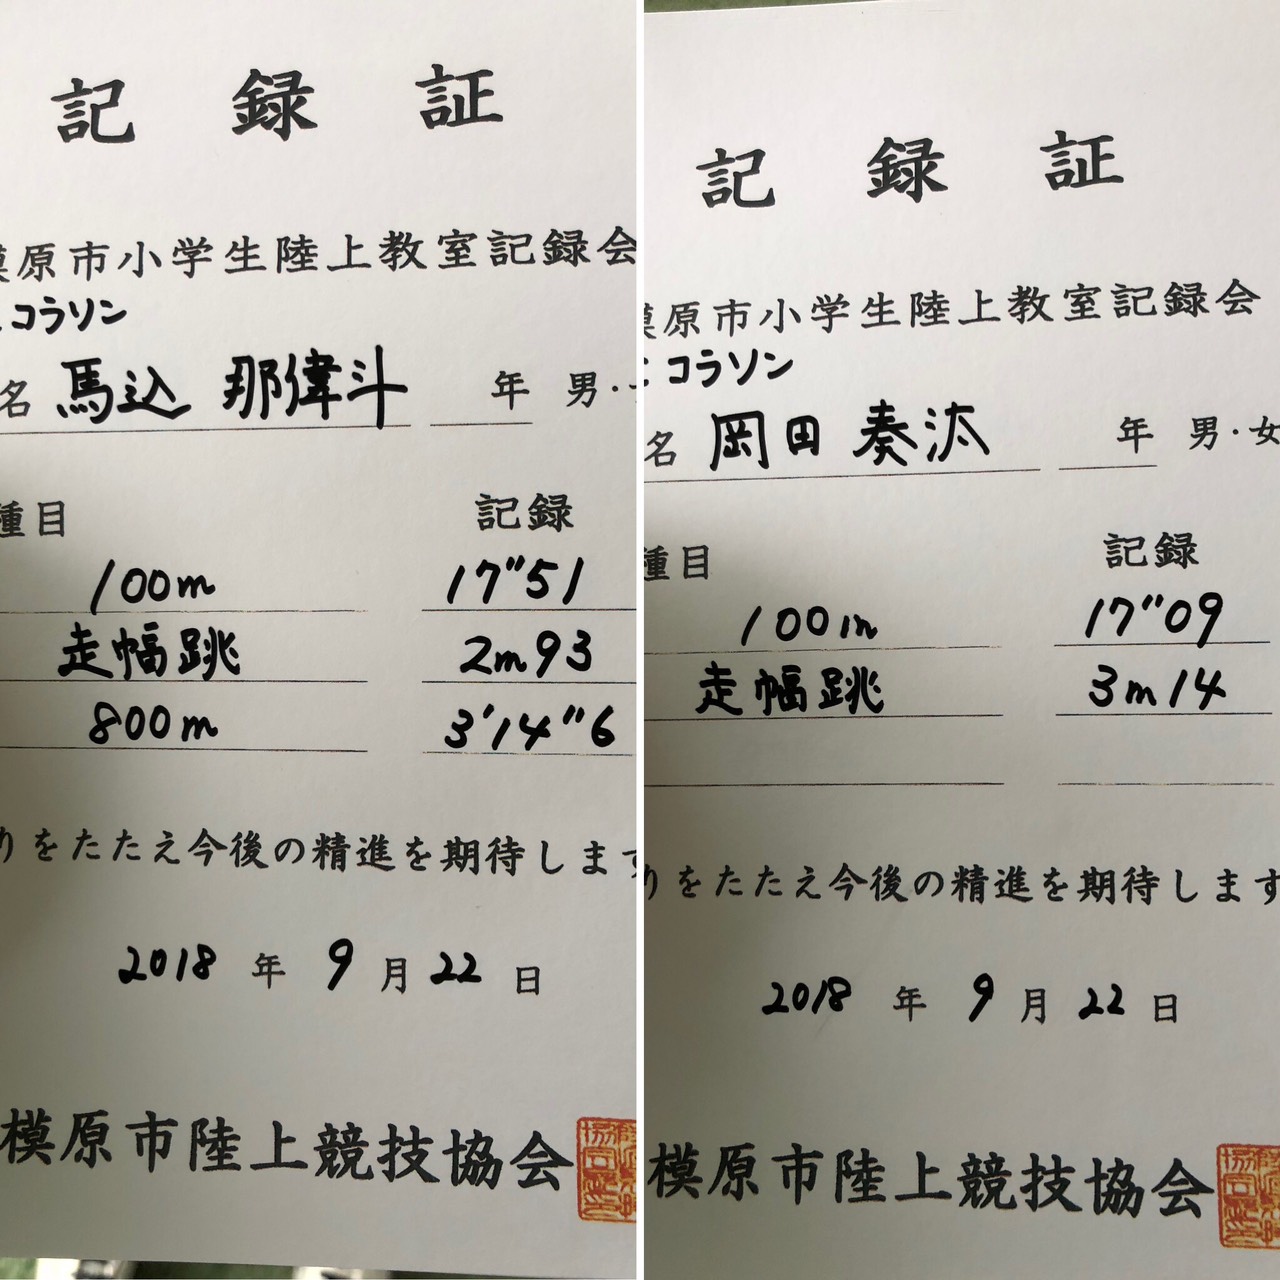 記録証
模原市小学生陸上教室記録会
コラソン
名 馬込 那偉斗 年 男・
種目 記録
100m 17"51
走幅跳 2m93
800m 3'14"6
りをたたえ今後の精進を期待します
2018年9月22日
模原市陸上競技協会
記録証
模原市小学生陸上教室記録会
コラソン
名 岡田 奏汰 年 男・女
種目 記録
100m 17"09
走幅跳 3m14
りをたたえ今後の精進を期待します
2018年9月22日
模原市陸上競技協会